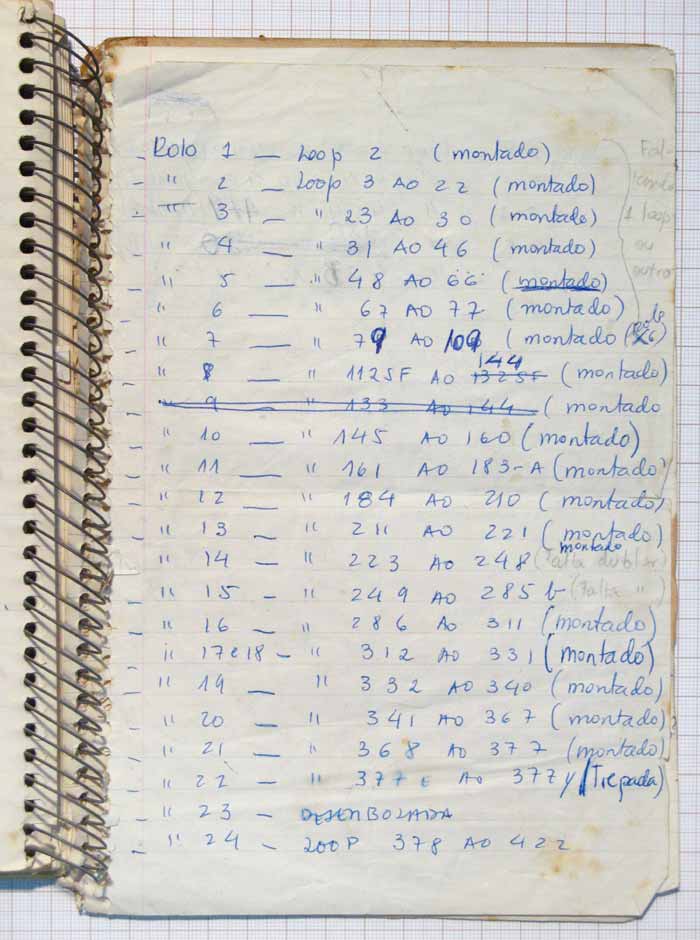 - Rolo 1 — Loop 2 (montado)
- " 2 — Loop 3 AO 22 (montado)
- " 3 — " 23 AO 30 (montado)
- " 4 — " 31 AO 46 (montado)
- " 5 — " 48 AO 66 (montado)
- " 6 — " 67 AO 77 (montado)
- " 7 — " 79 AO 109 (montado
144
- " 8 — " 112SF AO 132SF (montado)
" 9 — " 133 AO 144 (montado
- " 10 — " 145 AO 160 (montado)
- " 11 — " 161 AO 183-A (montado)
- " 12 — " 184 AO 210 (montado)
- " 13 — " 211 AO 221 (montado)
montado
- " 14 — " 223 AO 248 (Falta dublar)
- " 15 - " 249 AO 285 b (Falta ")
- " 16 — " 286 AO 311 (montado)
- " 17 e 18 - " 312 AO 331 (montado)
- " 19 — " 332 AO 340 (montado)
- " 20 — " 341 AO 367 (montado)
- " 21 — " 368 AO 377 (montado)
- " 22 — " 377 AO 377 y (Trepada)
- " 23 - DESENBOLADA
- " 24 - LOOP 378 AO 422
Fal-
tando
1 loop
ou
outro